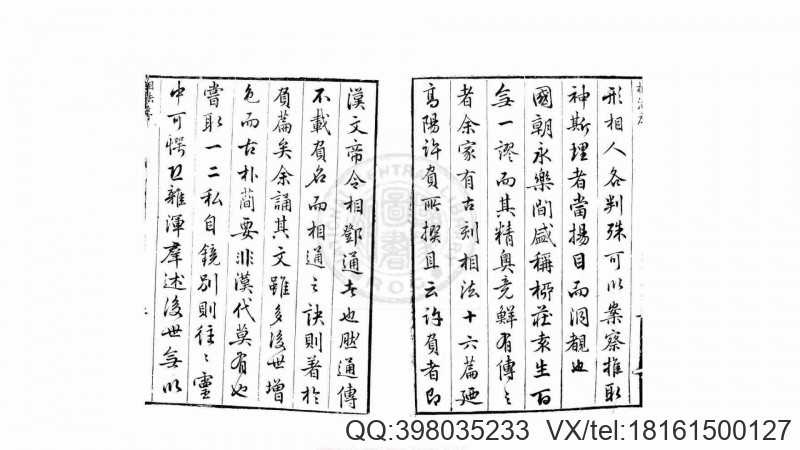 形相人各判殊可以案察推取
神斯理者當揚目而洞覩也
國朝永樂間盛稱栁莊袁生百
無一謬而其精奥竟鮮有傳之
者余家有古刻相法十六篇廼
髙陽許負所撰且云許負者即
漢文帝令相鄧通者也然通傳
不載負名而相通之訣則著於
負篇矣余誦其文雖多後世增
色而古朴蕳要非漢代莫有也
嘗取一二私自鏡别則往之靈
中可愕恐雜渾羣述後世無以
QQ:398035233 VX/tel:18161500127